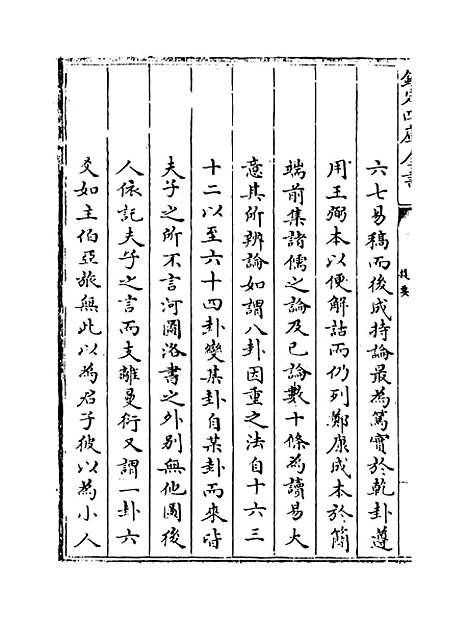 欽定四庫全書
提要
六七易稿而後成持論最為篤實於乾卦遵
用王弼本以便解詁而仍列鄭康成本於簡
端前集諸儒之論及已論數十條為讀易大
意其所辨論如謂八卦因重之法自十六三
十二以至六十四卦變某卦自某卦而來皆
夫子之所不言河圖洛書之外别無他圖後
人依託夫子之言而支離曼衍又謂一卦六
爻如主伯亞旅無此以為君子彼以為小人